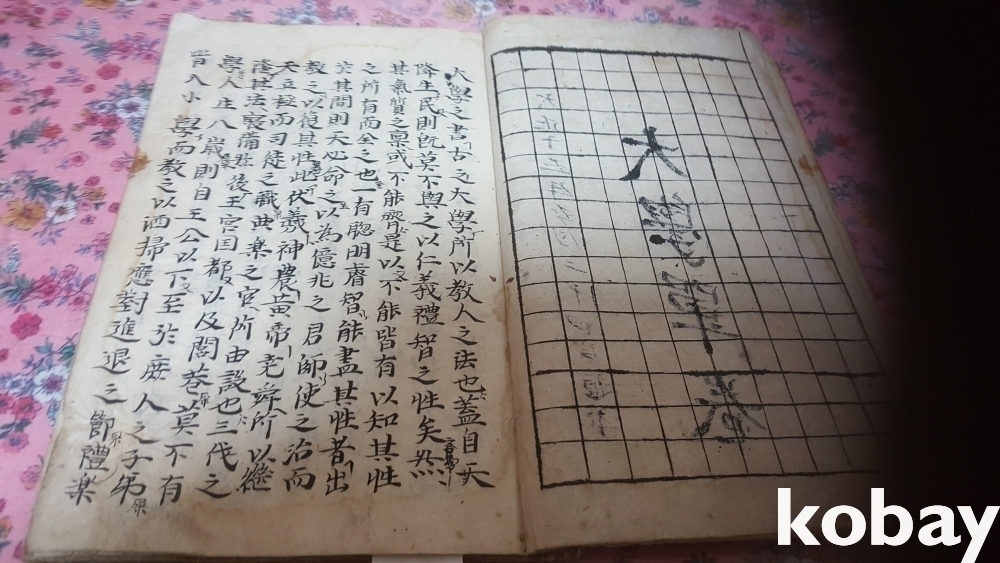 大
大學之書古之大學所以教人之法也蓋自天
降生民則旣莫不與之以仁義禮智之性矣然
其氣質之稟或不能齊是以不能皆有以知其性
之所有而全之也一有聦明睿智能盡其性者出
於其間則天必命之以為億兆之君師使之治而
教之以復其性此伏羲神農黃帝堯舜所以繼
天立極而司徒之職典楽之官所由設也三代之
隆其法寢備然後王宮囯都以及閭巷莫不有
學人生八歲則自王公以下至於庶人之子弟
皆入小學而教之以洒掃應對進退之節禮楽
kobay